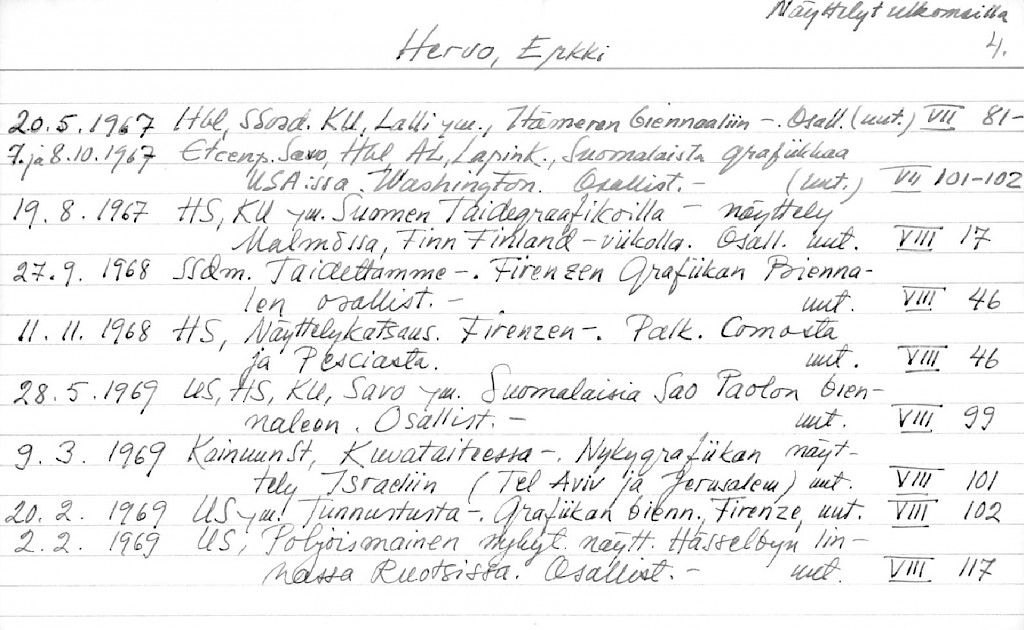 Näyttelyt ulkomailla
4.
Hervo, Erkki
20.5.1967 Hbl, SSosd. KU, Lalli ym., Itämeren biennaaliin -. Osall. (uut.) VII 81-
7. ja 8.10.1967 Etcenp. Savo, Hbl AL, Lapink., Suomalaista grafiikkaa
USA:ssa. Washington. Osallist. - (uut.) VII 101-102
19. 8. 1967 HS, KU ym. Suomen Taidegraafikoilla - näyttely
Malmössa, Finn Finland -viikolla. Osall. uut. VIII 17
27. 9. 1968 SSdm. Taidettamme -. Firenzen Grafiikan Bienna-
len osallist. - uut. VIII 46
11. 11. 1968 HS, Näyttelykatsaus. Firenzen -. Palk. Comosta
ja Pesciasta. uut. VIII 46
28. 5. 1969 US, HS, KU, Savo ym. Suomalaisia Sao Paolon bien-
naleen. Osallist. - uut. VIII 99
9. 3. 1969 KainuunSt, Kuvataiteessa -. Nykygrafiikan näyt-
tely Israeliin (Tel Aviv ja Jerusalem) uut. VIII 101
20. 2. 1969 US ym. Tunnustusta -. Grafiikan bienn., Firenze, uut. VIII 102
2. 2. 1969 US, Pohjoismainen nykyt. näytt. Hässelbyn lin-
nassa Ruotsissa. Osallist. - uut. VIII 117